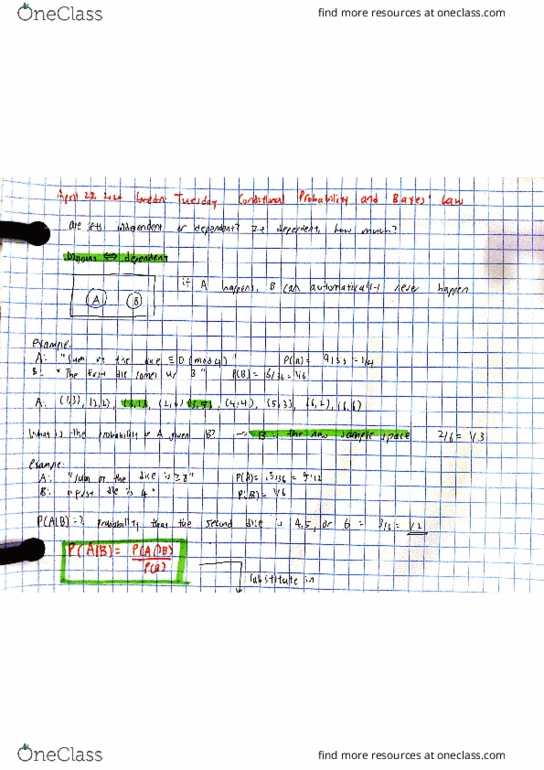 OneClass
find more resources at oneclass.com
April 28, 2020 Tuesday Conditional Probability and Bayes' Law
Are independent or dependent? If dependent, how much?
⇔ dependent
A B
if A happens, B can automatically never happen
Example:
A: "Sum of the dice ≡ 0 (mod 4)" P(A) = 9/36 = 1/4
B: "The first die comes up 3" P(B) = 6/36 = 1/6
A: (1,3), (2,2), (3,1), (2,6), (3,5), (4,4), (5,3), (6,2), (6,6)
What is the probability of A given B? → B is the new sample space 2/6 = 1/3
Example:
A: "sum of the dice is ≥ 8" P(A) = 15/36 = 5/12
B: "first die is 4" P(B) = 1/6
P(A|B) = ? probability that the second dice is 4,5, or 6 = 3/6 = 1/2
P(A|B) = P(A∩B) / P(B)
substitute in
OneClass
find more resources at oneclass.com